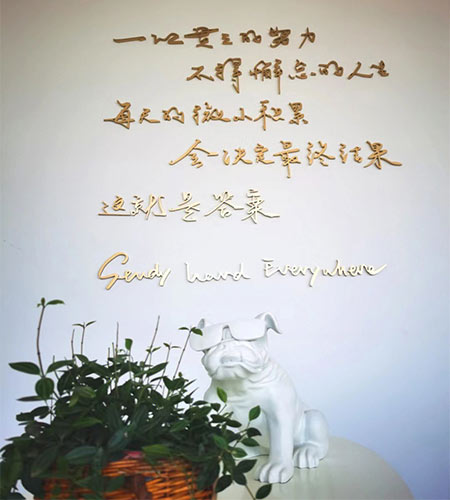 一以贯之的努力
不得懈怠的人生
每天的微小积累
会决定最终结果
这就是答案
Gendy hand Everywhere